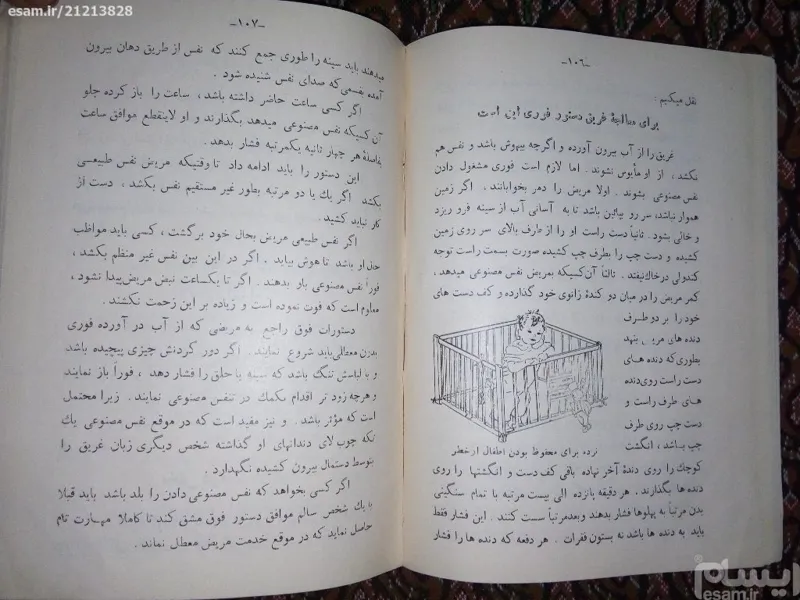 esam.ir/21213828
-۱۰۶-
نقل میکنیم :
برای معالجهٔ غریق دستور فوری این است
غریق را از آب بیرون آورده و اگرچه بیهوش باشد و نفس هم
نکشد، از او مأیوس نشوند. اما لازم است فوری مشغول دادن
نفس مصنوعی بشوند. اولا مریض را دمر بخوابانند. اگر زمین
هموار نباشد، سر رو بپائین باشد تا به آسانی آب از سینه فرو ریزد
و خالی بشود. ثانیاً دست راست او را طرف بالای سر روی زمین
کشیده و دست چپ را بطرف چپ کشیده صورت بسمت راست توجه
کندولی درخاك نیفتد. ثالثاً آن کسیکه بمریض نفس مصنوعی میدهد،
کمر مریض را در میان دو کندهٔ زانوی خود گذارده و کف دست های
خود را بر دو طرف
دنده های مریض بنهد
بطوری که دنده های
دست راست روی دنده
های طرف راست و
دست چپ روی طرف
چپ باشد، انگشت
نرده برای محفوظ بودن اطفال از خطر
کوچك را روی دندهٔ آخر نهاده باقی کف دست و انگشتها را روی
دنده ها بگذارند. هر دقیقه پانزده الی بیست مرتبه با تمام سنگینی
بدن مرتباً به پهلوها فشار بدهند و بعد مرتباً سست کنند. این فشار فقط
باید به دنده ها باشد نه بستون فقرات. هر دفعه که دنده ها را فشار
-۱۰۷-
میدهند باید سینه را طوری جمع کنند که نفس از طریق دهان بیرون
آمده بقسمی که صدای نفس شنیده شود.
اگر کسی ساعت حاضر داشته باشد، ساعت را باز کرده جلو
آن کسیکه نفس مصنوعی میدهد بگذارند و او لاینقطع موافق ساعت
بفاصلهٔ هر چهار ثانیه یکمرتبه فشار بدهد.
این دستور را باید ادامه داد تا وقتیکه مریض نفس طبیعی
بکشد. اگر یك یا دو مرتبه بطور غیر مستقیم نفس بکشد، دست از
کار نباید کشید.
اگر نفس طبیعی مریض بحال خود برگشت، کسی باید مواظب
حال او باشد تا هوش بیاید. اگر در این بین نفس غیر منظم بکشد،
فوراً نفس مصنوعی باو بدهند. اگر تا یکساعت نبض مریض پیدا نشود،
معلوم است که فوت نموده است و زیاده بر این زحمت نکشند.
دستورات فوق راجع به مریضی که از آب در آورده فوری
بدون معطلی باید شروع نمایند. اگر دور گردنش چیزی پیچیده باشد
و یا لباسش تنگ باشد که سینه یا حلق را فشار دهد، فوراً باز نمایند
و هرچه زود تر اقدام بکمك در تنفس مصنوعی نمایند. زیرا محتمل
است که مؤثر باشد. و نیز مفید است که در موقع نفس مصنوعی یك
تکه چوب لای دندانهای او گذاشته شخص دیگری زبان غریق را
بتوسط دستمال بیرون کشیده نگهدارد.
اگر کسی بخواهد که نفس مصنوعی دادن را بلد باشد باید قبلا
با یك شخص سالم موافق دستور فوق مشق کند تا کاملا مهارت تام
حاصل نماید که در موقع خدمت مریض معطل نماند.
ایسام
esam.ir